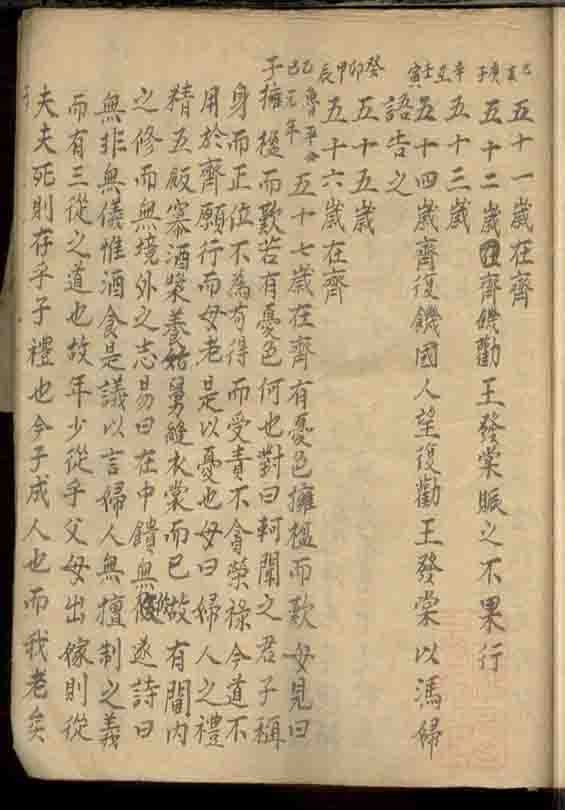 己亥五十一歲在齊
庚子五十二歲在齊饑勸王發棠賑之不果行
辛丑五十三歲
壬寅五十四歲齊復饑國人望復勸王發棠以馮婦
語告之
癸卯五十五歲
甲辰五十六歲在齊
乙巳魯平公元年五十七歲在齊有憂色擁楹而歎母見曰
子擁楹而歎若有憂色何也對曰軻聞之君子稱
身而正位不為苟得而受責不貪榮祿今道不
用於齊願行而母老是以憂也母曰婦人之禮
精五飯冪酒漿養姑舅縫衣裳而已故有閨內
之修而無境外之志易曰在中饋無攸遂詩曰
無非無儀惟酒食是議以言婦人無擅制之義
而有三從之道也故年少從乎父母出嫁則從
夫夫死則存乎子禮也今子成人也而我老矣